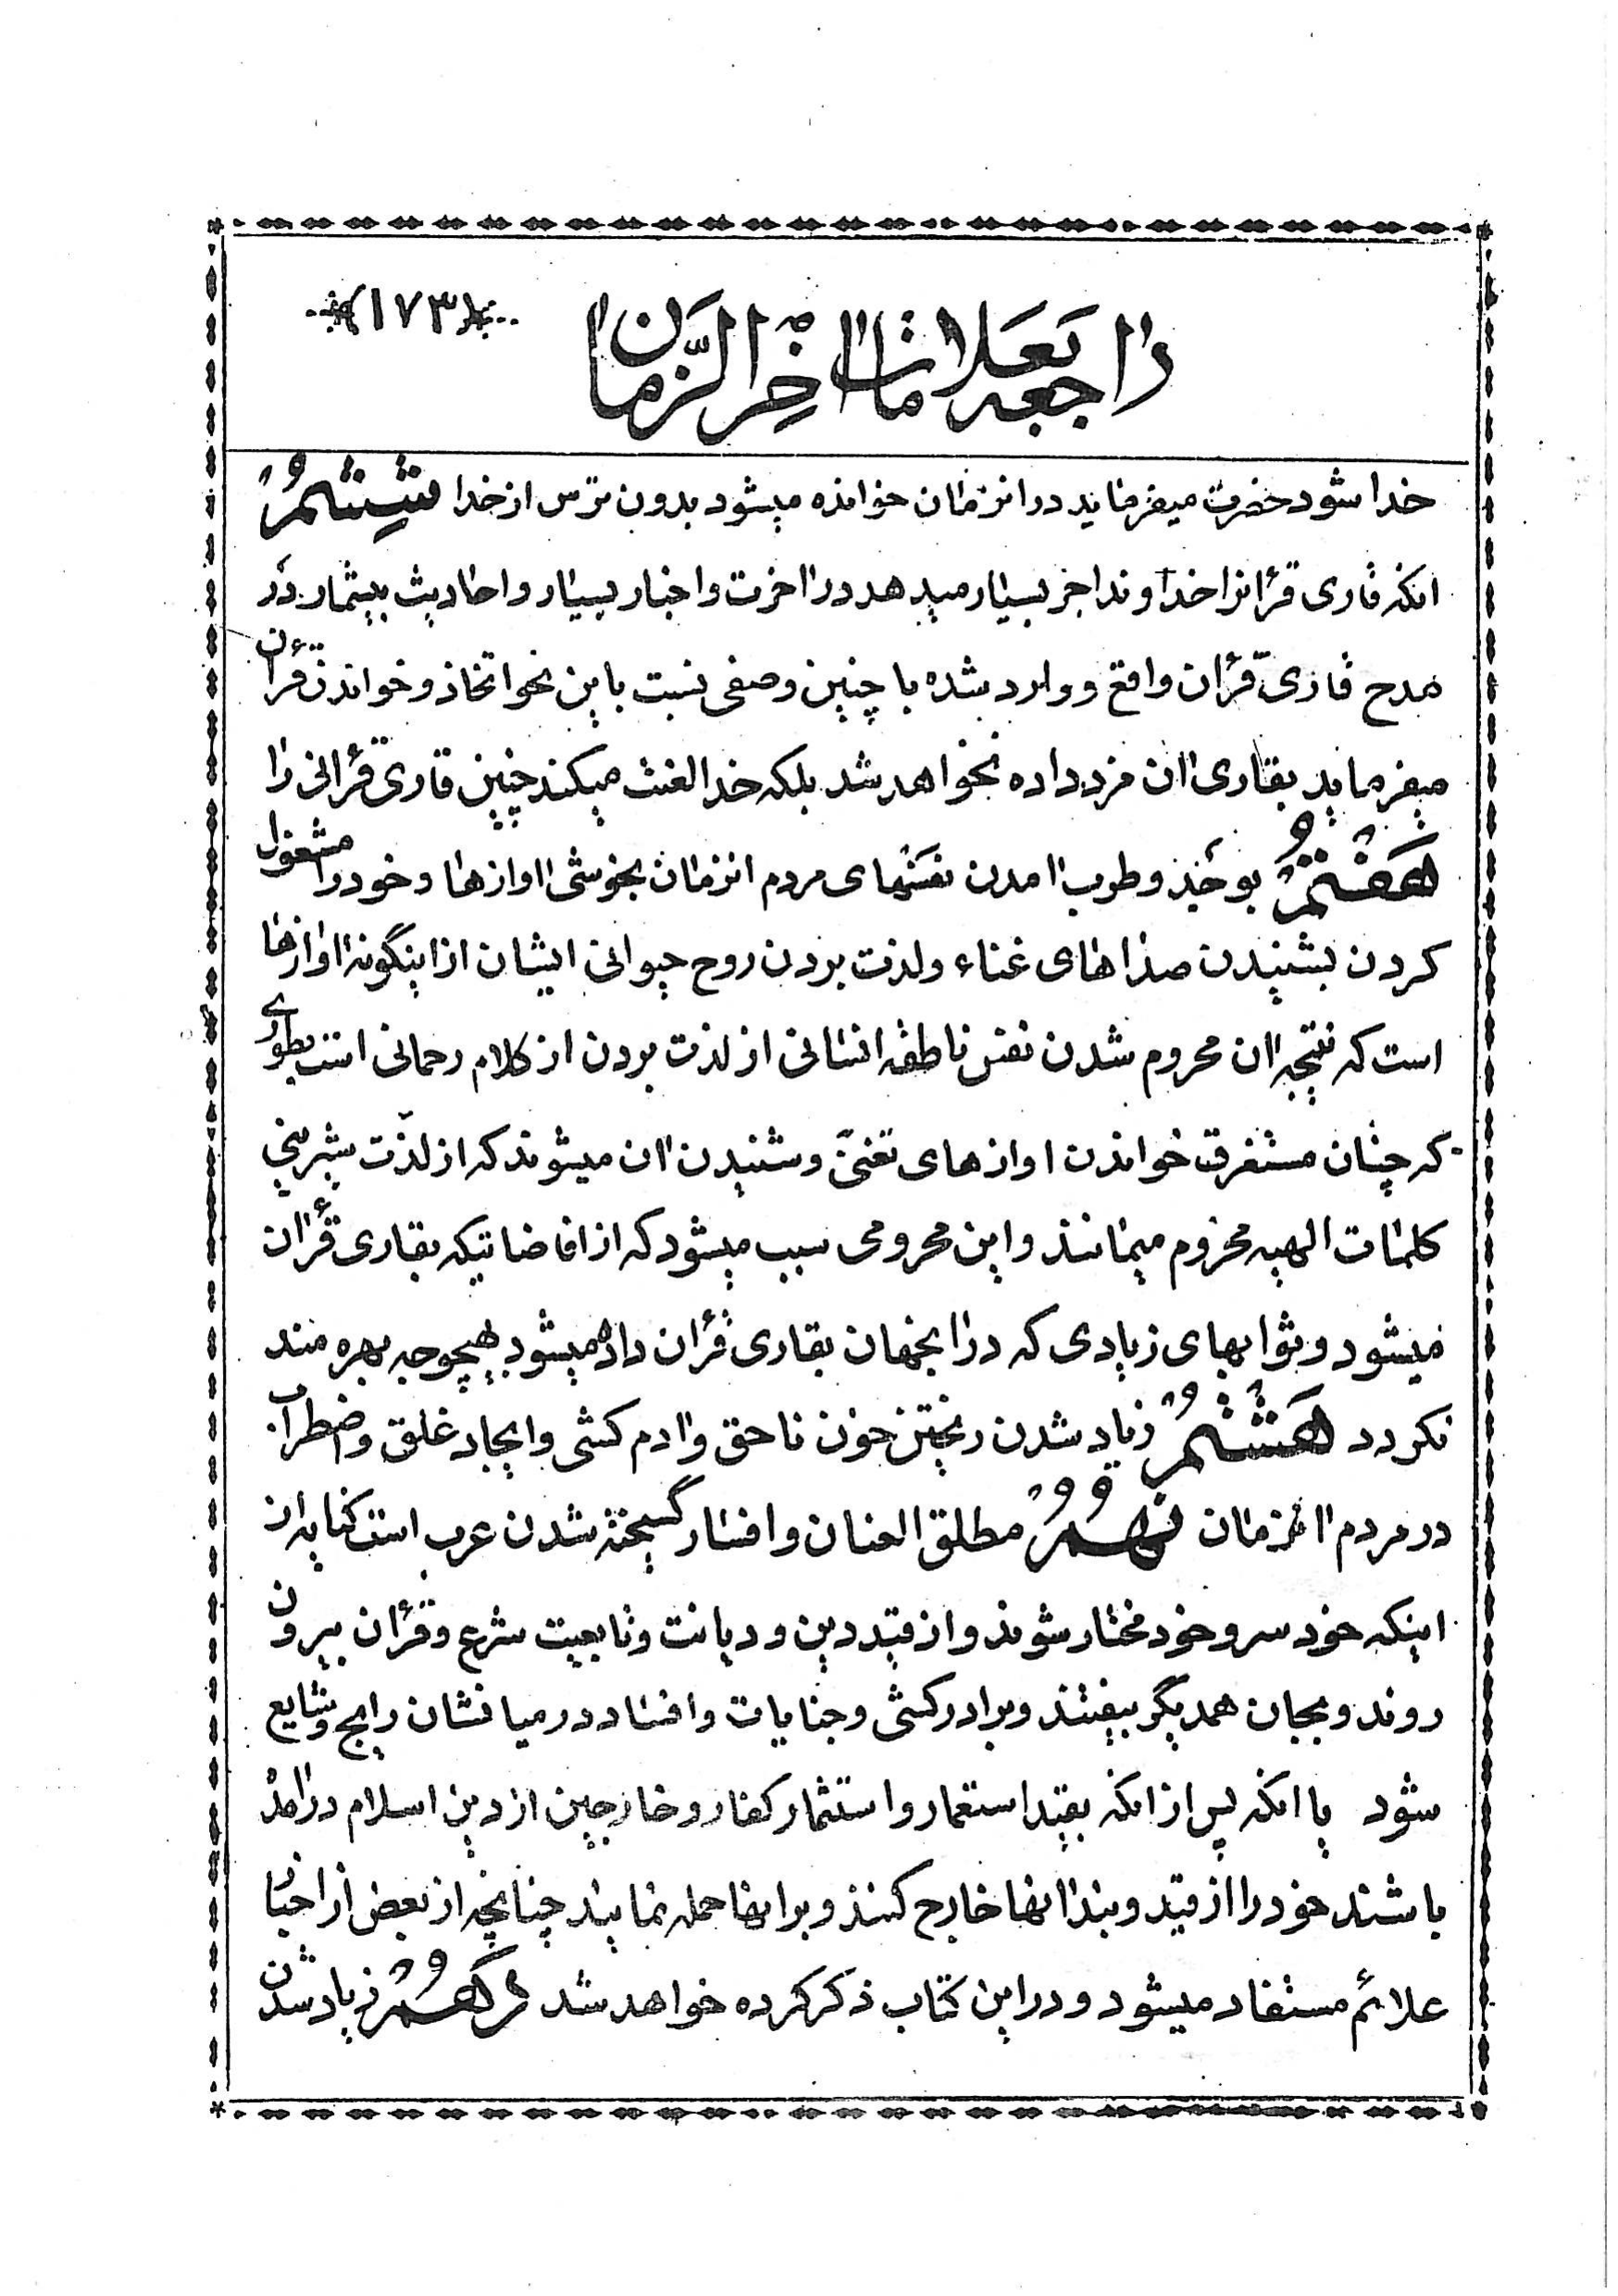 ﴿۱۷۳﴾
راجعه بعلامات اخر الزّمان
خدا شود حضرت میفرماید در انزمان خوانده میشود بدون ترس از خدا ششمُ
انکه قاری قرانرا خداوند اجر بسیار میدهد در اخرت و اخبار بسیار و احادیث بیشمار در
مدح قاری قران واقع و وارد شده با چنین وصفی نسبت باین نحو اتخاذ و خواندن قران
میفرماید بقاری ان مزد داده نخواهد شد بلکه خدا لعنت میکند چنین قاری قرانی را
هفتمُ بوجد و طرب امدن نفسهای مردم انزمان بخوشی اوازها و خود را مشغول
کردن بشنیدن صداهای غناء و لذت بردن روح حیوانی ایشان از اینگونه اوازها
است که نتیجه ان محروم شدن نفس ناطقه انسانی از لذت بردن از کلام رحمانی است بطوری
که چنان مستغرق خواندن اوازهای تغنّی و شنیدن ان میشوند که از لذّت شیرینی
کلمات الهیه محروم میمانند و این محرومی سبب میشود که از افاضاتیکه بقاری قران
میشود و ثوابهای زیادی که در انجهان بقاری قران داده میشود بهیچوجه بهره مند
نکردد هشتمُ زیاد شدن ریختن خون ناحق و ادم کشی و ایجاد غلق و اضطراب
در مردم انزمان نهمُ مطلق العنان و افسار گسیخته شدن عرب است کنایه از
اینکه خود سر و خود مختار شوند و از قید دین و دیانت و تابعیت شرع و قران بیرون
روند و بجان همدیگر بیفتند و برادر کشی و جنایات و افساد در میانشان رایج و شایع
شود یا انکه پس از انکه بقید استعمار و استثمار کفار و خارجین از دین اسلام درامده
باشند خود را از قید و بند انها خارج کنند و برانها حمله نمایند چنانچه از بعض از اخبار
علائم مستفاد میشود و در این کتاب ذکر کرده خواهد شد دهمُ زیاد شدن